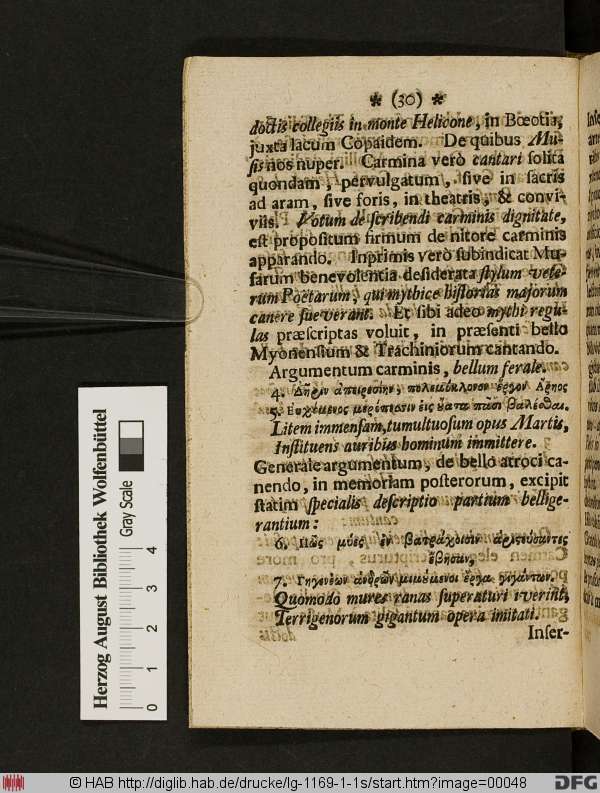 * (30) *
doctis collegiis in monte Helicone, in Bœotia,
juxta lacum Copaidem. De quibus Mu-
sis nos nuper. Carmina verò cantari solita
quondam, pervulgatum, sive in sacris
ad aram, sive foris, in theatris, & convi-
viis. Votum describendi carminis dignitate,
est propositum firmum de nitore carminis
apparando. Inprimis verò subindicat Mu-
sarum benevolentia desiderata stylum vete-
rum Poëtarum, qui mythice historias majorum
canere sueverant. Et sibi adeo mythi regu-
las præscriptas voluit, in præsenti bello
Myonensium & Trachiniorum cantando.
Argumentum carminis, bellum ferale.
4. Δῆριν ἀπειρεσίην, πολεμόκλονον ἔργον Ἄρηος
5. Εὐχόμενος μερόπεσσιν εἰς ὔατα πᾶσι βαλέσθαι.
Litem immensam, tumultuosum opus Martis,
Instituens auribus hominum immittere.
Generale argumentum, de bello atroci ca-
nendo, in memoriam posterorum, excipit
statim specialis descriptio partium bellige-
rantium:
6. Πῶς μύες ἐν βατράχοισιν ἀριστεύσαντες
ἔβησαν,
7. Γηγενέων ἀνδρῶν μιμούμενοι ἔργα γιγάντων.
Quomodo mures ranas superaturi iverint,
Terrigenorum gigantum opera imitati.
Inser-
Herzog August Bibliothek Wolfenbüttel
Gray Scale
0 1 2 3 4
© HAB http://diglib.hab.de/drucke/lg-1169-1-1s/start.htm?image=00048
DFG